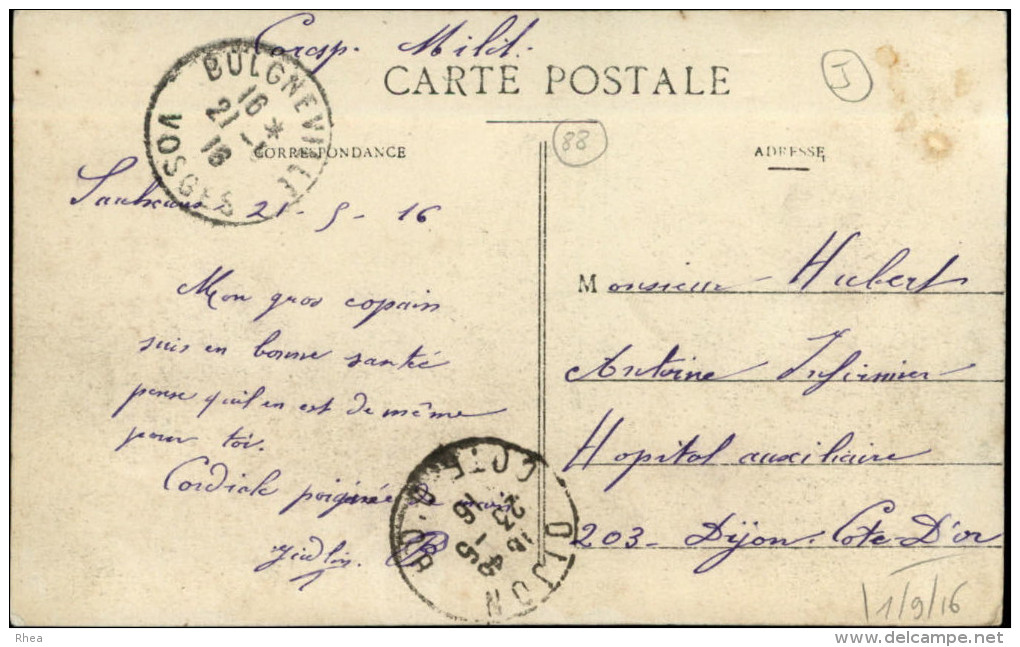 Coresp. Milit.
CARTE POSTALE
J
BULGNEVILLE
16 *
21 -
16
VOSGES
88
CORRESPONDANCE
ADRESSE
21 - 5 - 16
Mon gros copain
suis en bonne santé
pense qu'il en est de même
pour toi.
Cordiale poignée de main
Monsieur Hubert
Antoine Infirmier
Hopital auxiliaire
203 - Dijon. Cote D'or
DIJON
COTE D'OR
1/9/16
Rhea
delcampe.net